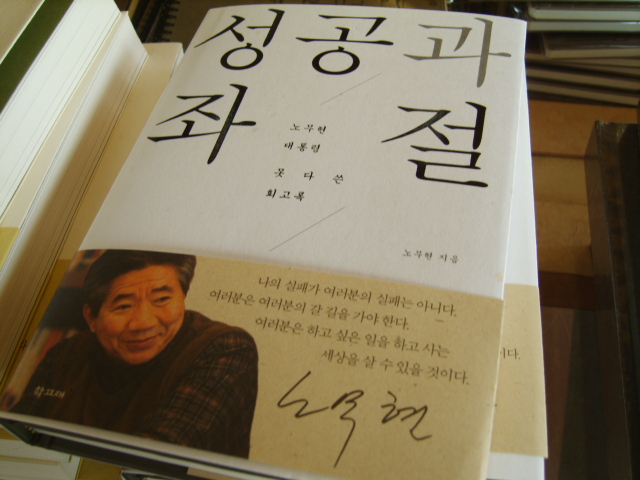 성공과
좌절
노무현
대통령
못 다 쓴
회고록
노무현 지음
나의 실패가 여러분의 실패는 아니다.
여러분은 여러분의 갈 길을 가야 한다.
여러분은 하고 싶은 일을 하고 사는
세상을 살 수 있을 것이다.
노무현
학고재
니다.